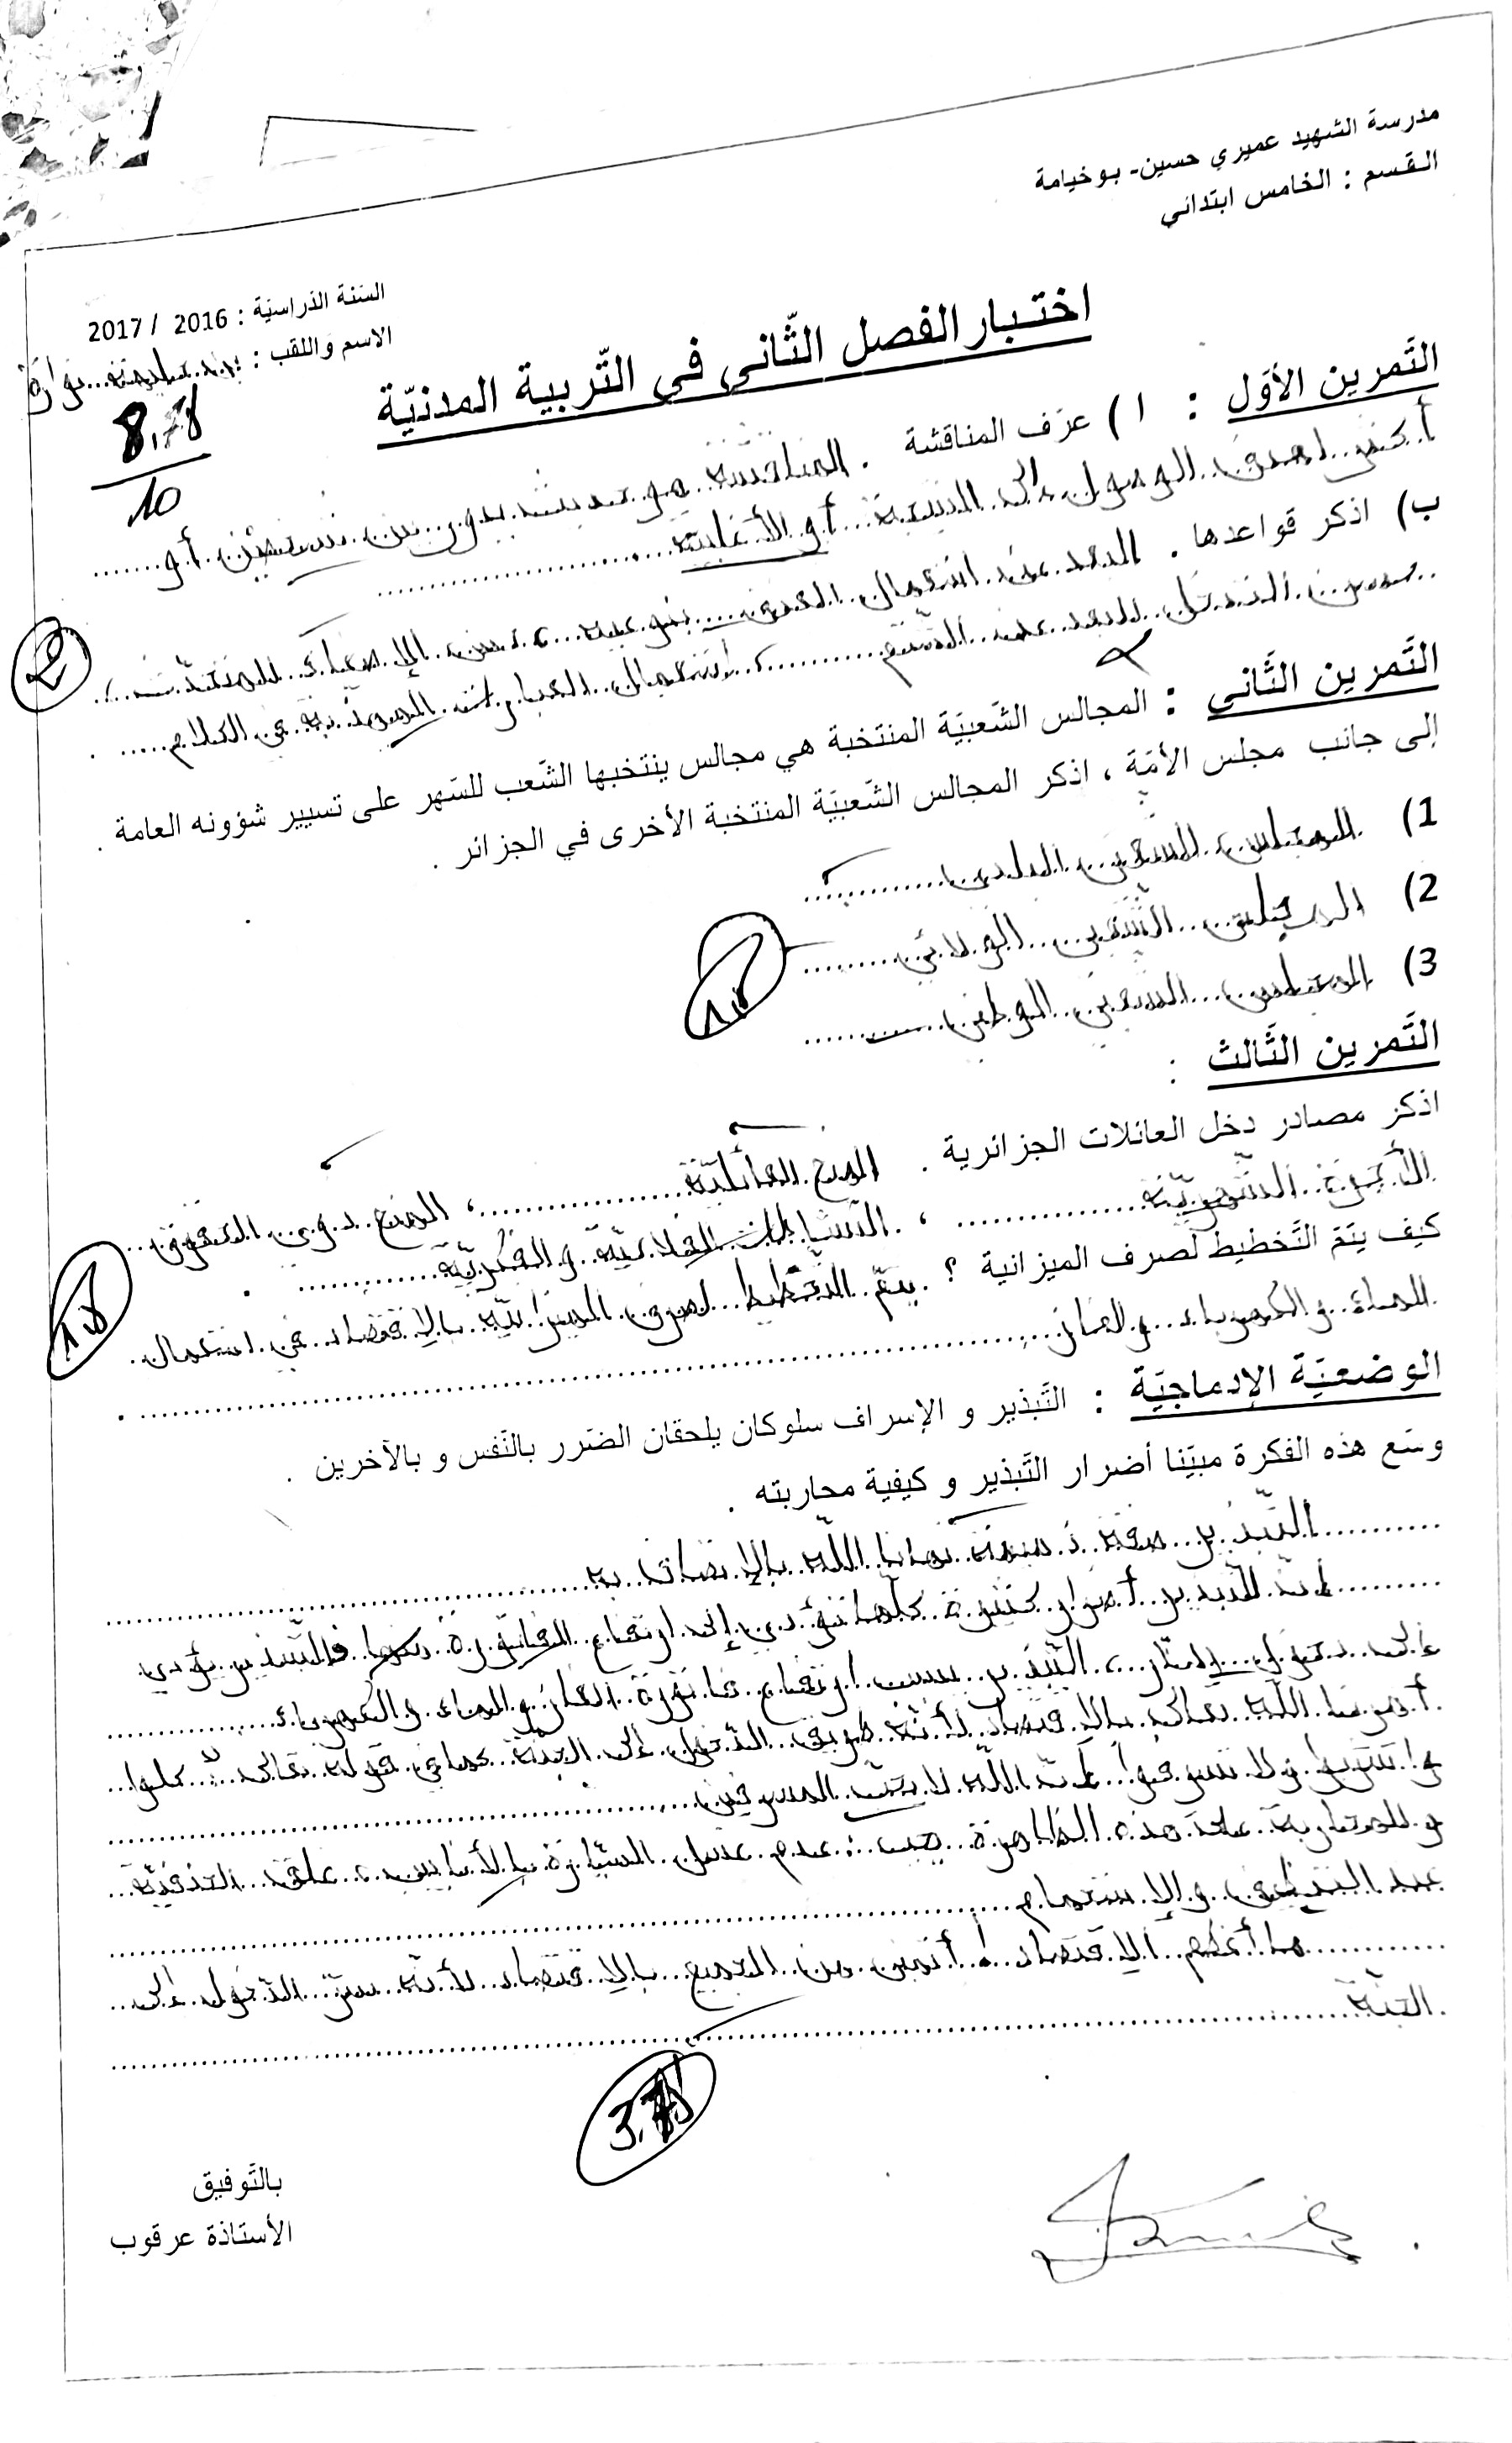 مدرسة الشهيد عميري حسين- بوخيامة
القسم : الخامس ابتدائي
السّنة الدّراسيّة : 2016 / 2017
الاسم واللقب :
8,75
10
اختبار الفصل الثّاني في التّربية المدنيّة
التّمرين الأوّل : ا ) عرّف المناقشة . المناقشة هو حديث يدور بين شخصين أو
أكثر لهدف الوصول إلى النتيجة أو الأغلبية
ب) اذكر قواعدها . البعد عن استعمال العنف بنوعيه ، حسن الإصغاء للمتحدّث ،
حسن التدخل البعد عن الشتم ، استعمال العبارات المهذّبة في الكلام .
2
التّمرين الثّاني : المجالس الشّعبيّة المنتخبة هي مجالس ينتخبها الشّعب للسّهر على تسيير شؤونه العامة .
إلى جانب مجلس الأمّة ، اذكر المجالس الشّعبيّة المنتخبة الأخرى في الجزائر .
1) المجلس الشعبي البلدي
2) المجلس الشّعبي الولائي
3) المجلس الشعبي الوطني
1,5
التّمرين الثّالث :
اذكر مصادر دخل العائلات الجزائرية . المنح العائليّة ، المنح ذوي الحقوق
الأجرة الشّهريّة ، النّشاطات الفلاحيّة و الفكريّة .
كيف يتمّ التّخطيط لصرف الميزانية ؟ يتمّ التخطيط لصرف الميزانيّة بالاقتصاد في استعمال
الماء و الكهرباء و الغاز .
1,5
الوضعيّة الإدماجيّة : التّبذير و الإسراف سلوكان يلحقان الضّرر بالنّفس و بالآخرين .
وسّع هذه الفكرة مبيّنا أضرار التّبذير و كيفية محاربته .
التّبذير صفة ذميمة نهانا اللّه بالإتصاف به
إنّ للتّبذير أضرار كثيرة كلّها تؤدي إلى ارتفاع الفاتورة فالتّبذير يؤدي
إلى دخول النّار ، التّبذير يسبب ارتفاع فاتورة الغاز و الماء و الكهرباء
أمرنا اللّه تعالى بالاقتصاد لأنّه طريق الدّخول إلى الجنّة كما في قوله تعالى : كلوا
واشربوا ولا تسرفوا إنّ اللّه لا يحبّ المسرفين
و للمحاربة على هذه الظاهرة يجب : عدم غسل السّيّارة بالأنابيب ، غلق الحنفيّة
عند التنظيف و الإستحمام
ما أعظم الاقتصاد ! أتمنى من الجميع بالاقتصاد لأنّه سرّ الدّخول إلى
الجنّة
3,75
بالتّوفيق
الأستاذة عرقوب